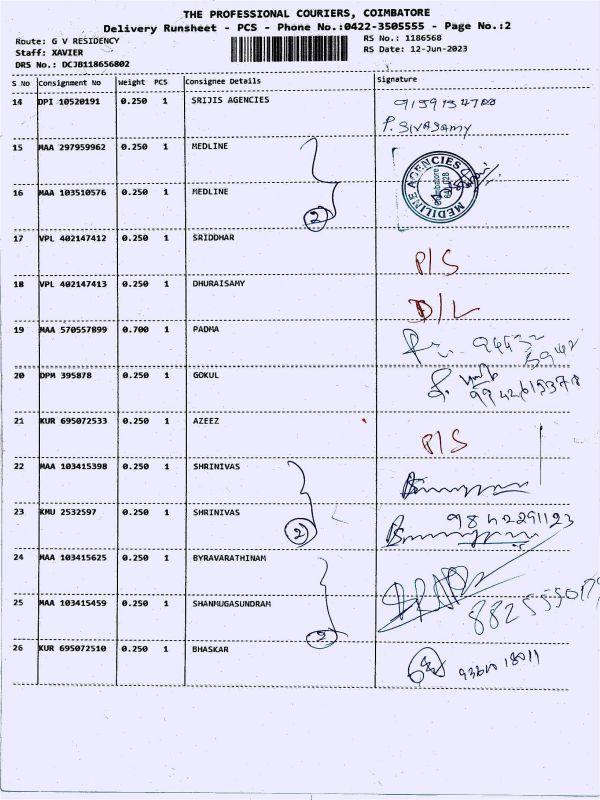 THE PROFESSIONAL COURIERS, COIMBATORE
Delivery Runsheet - PCS - Phone No.:0422-3505555 - Page No.:2
Route: G V RESIDENCY
RS No.: 1186568
Staff: XAVIER
RS Date: 12-Jun-2023
DRS No.: DCJB118656802
S No Consignment No Weight PCS Consignee Details Signature
14 DPI 10520191 0.250 1 SRIJIS AGENCIES
P. SIVASAMY
15 MAA 297959962 0.250 1 MEDLINE
MEDILINE AGENCIES
16 MAA 103510576 0.250 1 MEDLINE
2
17 VPL 402147412 0.250 1 SRIDDHAR
P/S
18 VPL 402147413 0.250 1 DHURAISAMY
D/L
19 MAA 570557899 0.700 1 PADMA
20 DPM 395878 0.250 1 GOKUL
21 KUR 695072533 0.250 1 AZEEZ
P/S
22 MAA 103415398 0.250 1 SHRINIVAS
23 KMU 2532597 0.250 1 SHRINIVAS
2
9842291123
24 MAA 103415625 0.250 1 BYRAVARATHINAM
25 MAA 103415459 0.250 1 SHANMUGASUNDRAM
2
26 KUR 695072510 0.250 1 BHASKAR